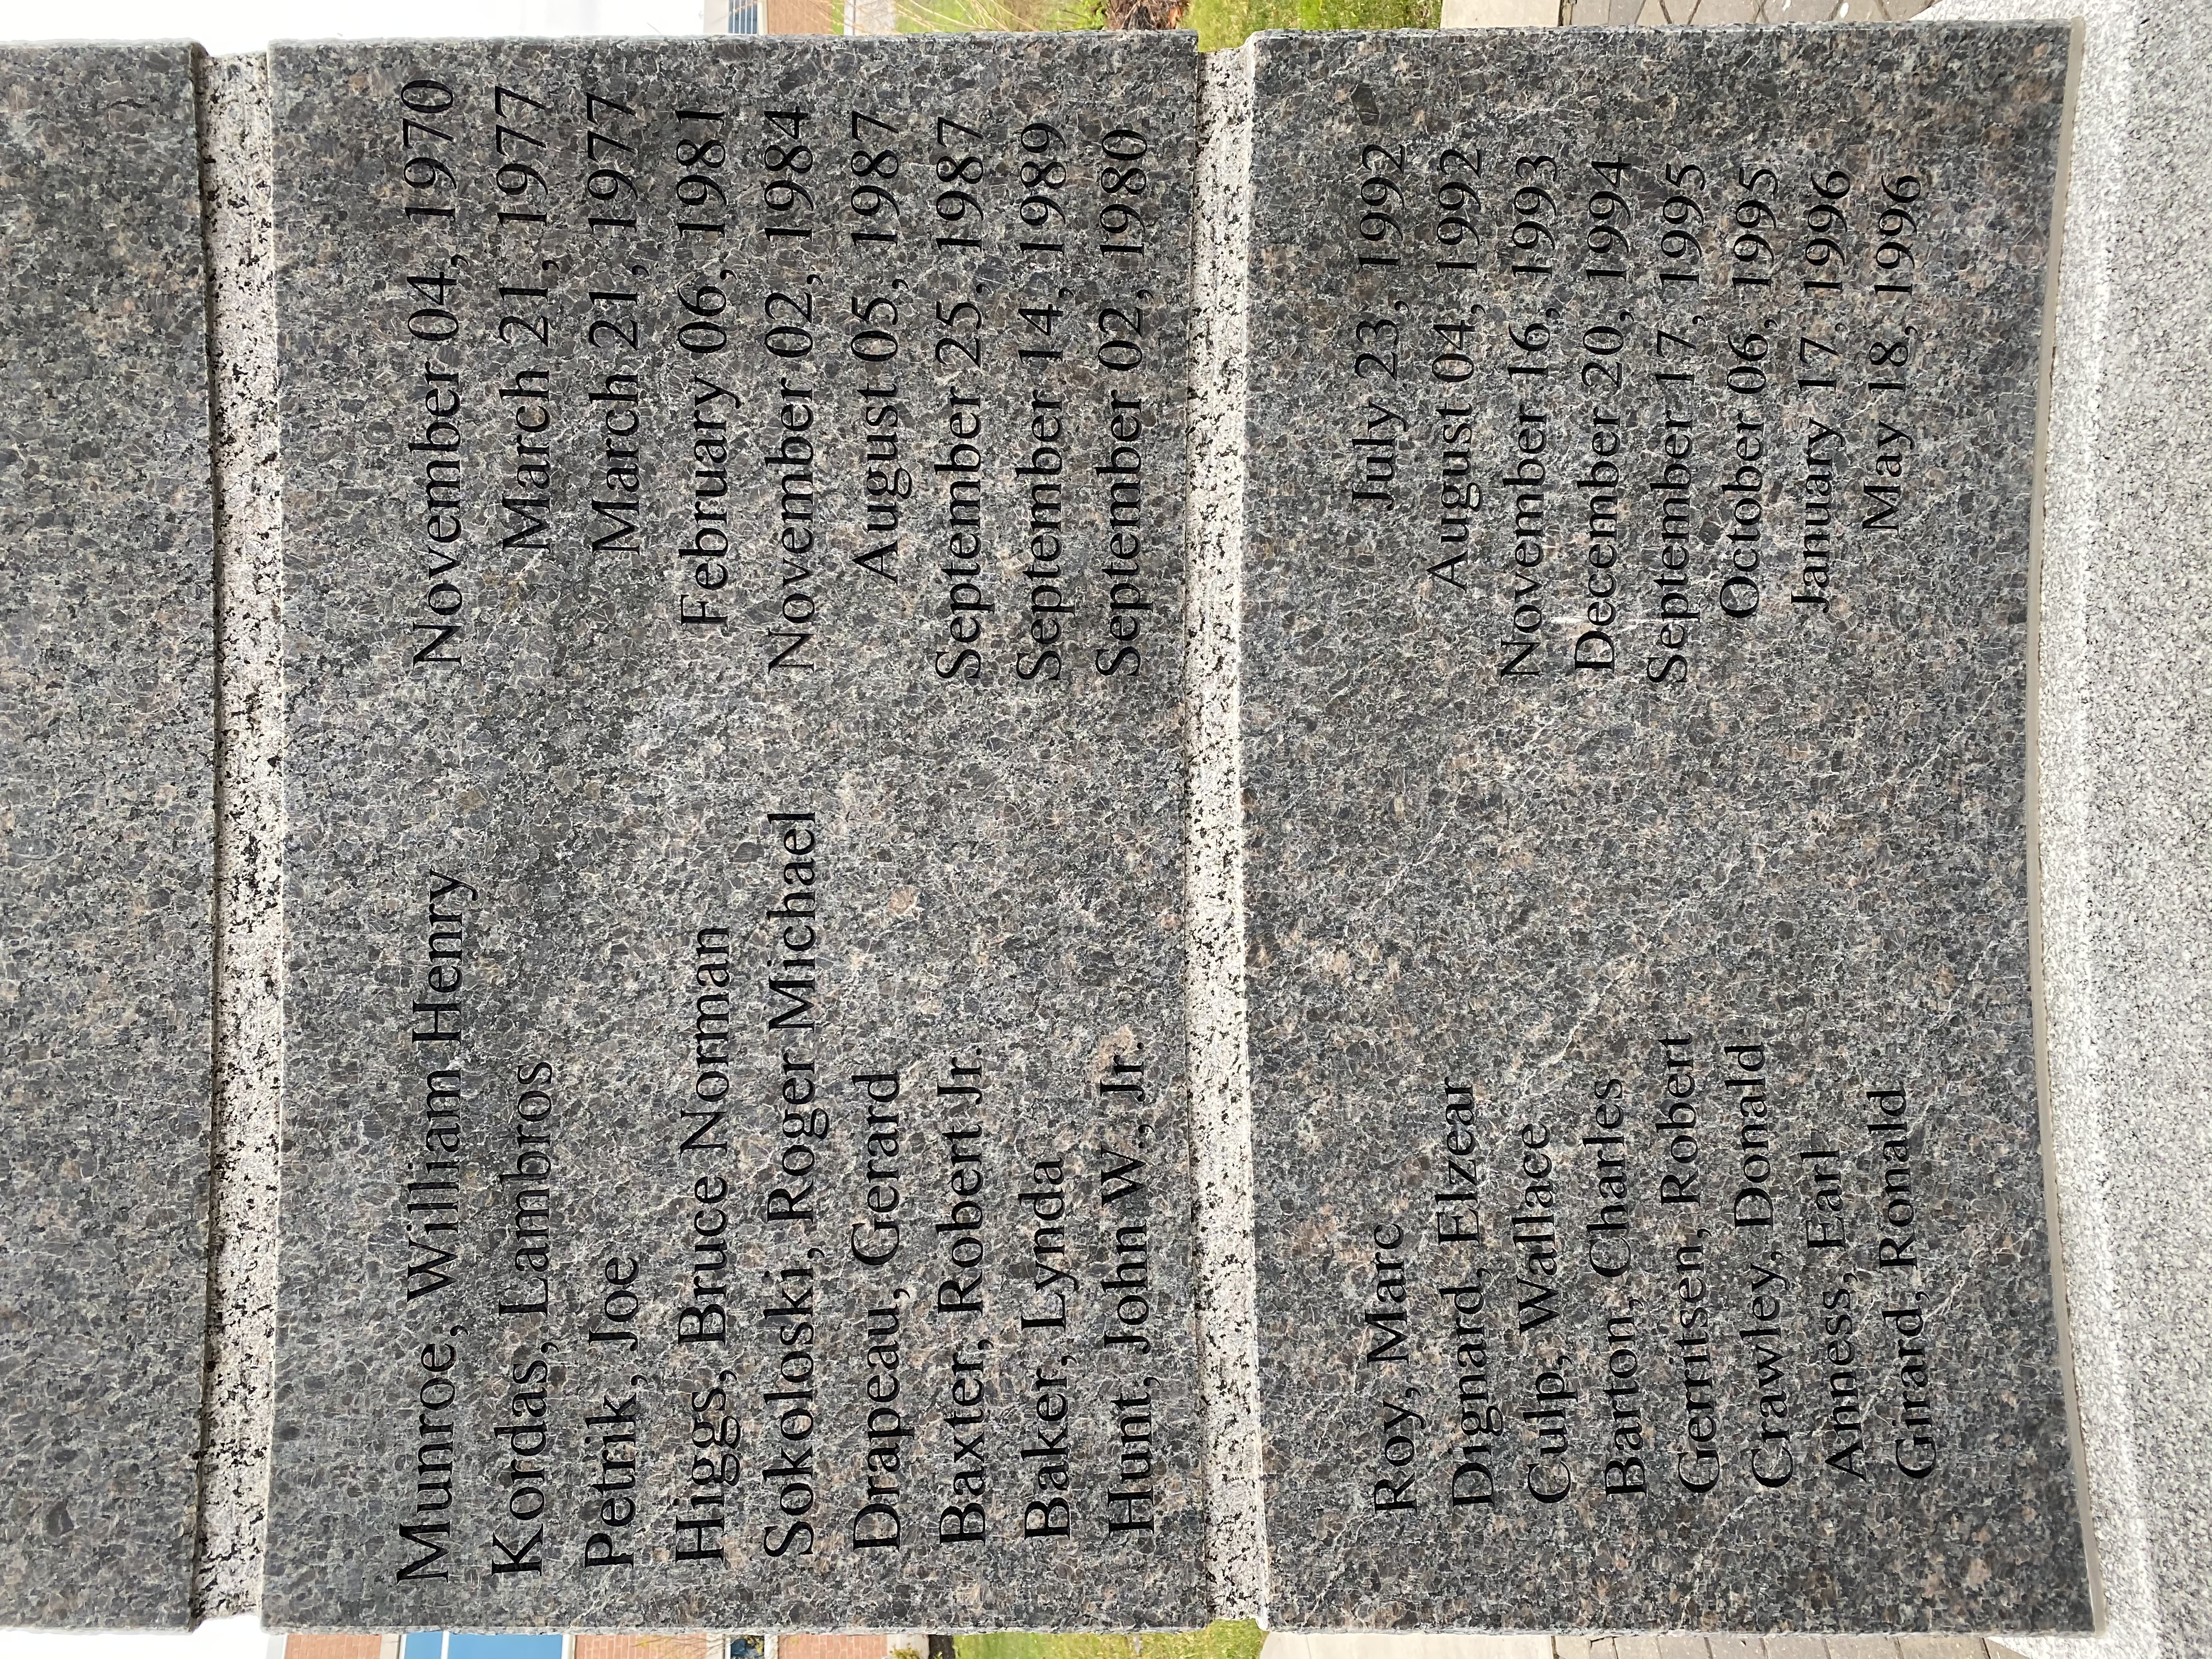 Munroe, William Henry November 04, 1970
Kordas, Lambros March 21, 1977
Petrik, Joe March 21, 1977
Higgs, Bruce Norman February 06, 1981
Sokoloski, Roger Michael November 02, 1984
Drapeau, Gerard August 05, 1987
Baxter, Robert Jr. September 25, 1987
Baker, Lynda September 14, 1989
Hunt, John W., Jr. September 02, 1980
Roy, Marc July 23, 1992
Dignard, Elzear August 04, 1992
Culp, Wallace November 16, 1993
Barton, Charles December 20, 1994
Gerritsen, Robert September 17, 1995
Crawley, Donald October 06, 1995
Anness, Earl January 17, 1996
Girard, Ronald May 18, 1996